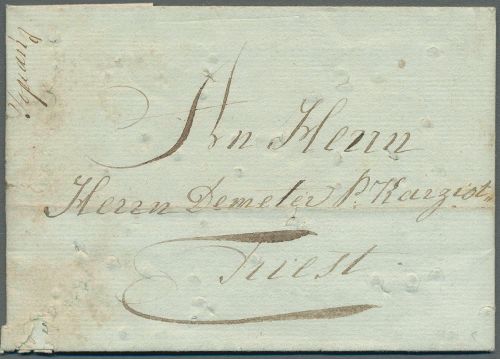 An Herrn
Herrn Demeter P. Kargiot
Triest